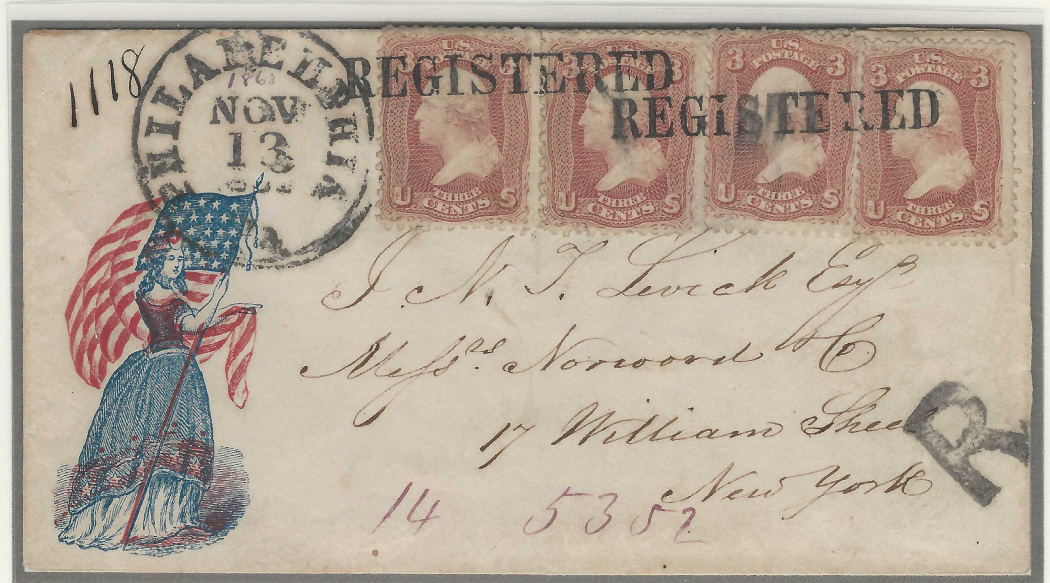 1118
PHILADELPHIA
1863
NOV
13
PA
REGISTERED
REGISTERED
3 U.S. POSTAGE 3
U THREE CENTS S
3 U.S. POSTAGE 3
U THREE CENTS S
3 U.S. POSTAGE 3
U THREE CENTS S
3 U.S. POSTAGE 3
U THREE CENTS S
J. N. T. Levick Esqr
Messrs. Norwood & Co
17 William Street
New York
R
14 5352